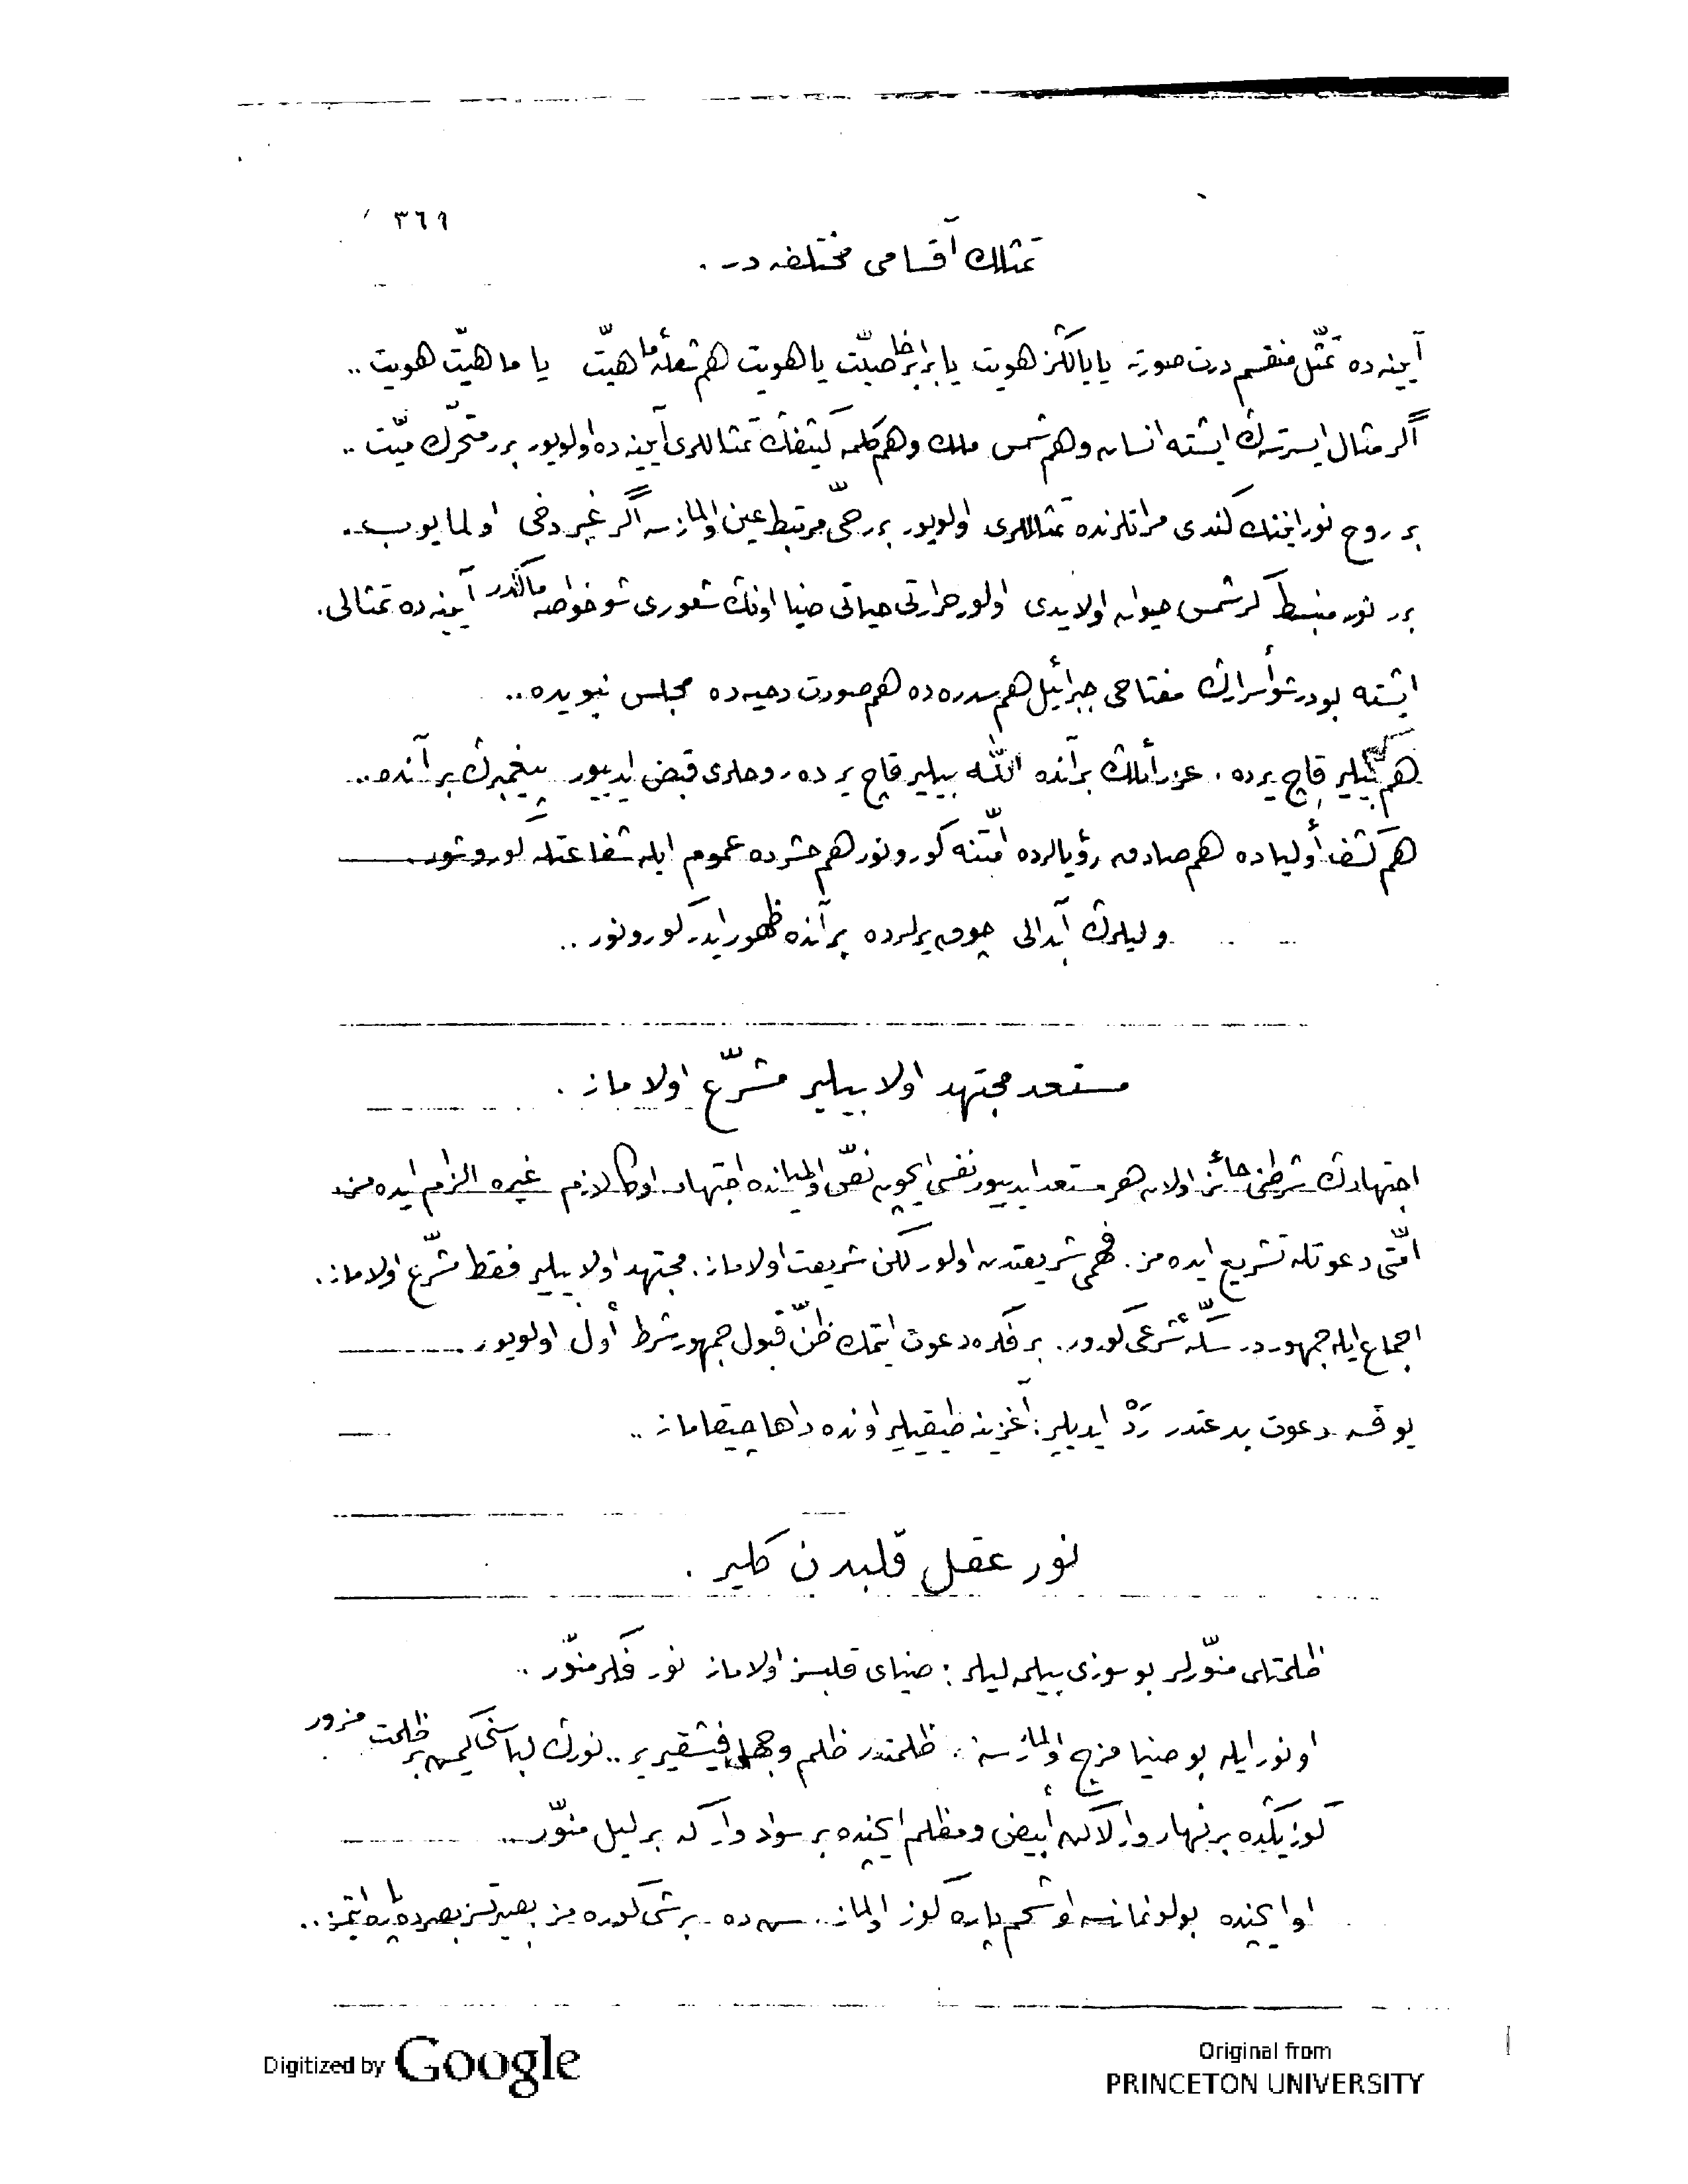 ٣٦٩
تمثلك آقسامى مختلفه در .
آيينه ده تمثّل منقسم درت صورته يا يالكز هويت يا برابر خاصيّت يا هويت هم شعلهٔ ماهيّت يا ماهيّت هويت ..
اگر مثال ايسترسه‌ڭ ايشته انسان و هم شمس ملك و هم كلمه كثيفڭ تمثاللرى آيينه ده اولويور برر متحرّك ميّت ..
بر روح نورانينڭ كندى مرآتلرنده تمثاللرى اولويور برر حىّ مرتبط عين اولمازسه اگر غير دخى اولمايوب ..
برر نور منبسط گر شمس حيوان اولايدى اولور حرارتى حياتى ضيا اونڭ شعورى شو خواصه مالكدر آيينه ده تمثالى .
ايشته بودر شو أسرارڭ مفتاحى جبرائيل هم سدره ده هم صورت دحيه ده مجلس نبويده ..
هم كيم بيلير قاچ يرده . عزرائلڭ برآنده اللّه بيلير قاچ يرده روحلرى قبض ايدييور پيغمبرڭ بر آنده ..
هم كشف أوليا ده هم صادق رؤيالرده امّتنه كورونور هم حشرده عموم ايله شفاعتله كوروشور .
وليلرڭ آبدالى چوق يرلرده برآنده ظهور ايدر كورونور ..
مستعد مجتهد اولابيلير مشرّع اولاماز .
اجتهادڭ شرطنى حائز اولان هر مستعد ايدييور نفسى ايچون نصّ اولميانده اجتهاد اوكا لازم غيره الزام ايده مز
امّتى دعوتله تشريع ايده مز . فهمى شريعتدن اولور لكن شريعت اولاماز . مجتهد اولابيلير فقط مشرّع اولاماز .
اجماع ايله جمهوردر سكّهٔ شرعى كورور . بر فكره دعوت ايتمك ظنّ قبول جمهور شرط أول اولويور .
يوقسه دعوت بدعتدر ردّ ايديلير : آغزينه طيقيلير اونده داها چيقاماز ..
نور عقل قلبدن كلير .
ظلمتلى منوّرلر بو سوزى بيلملىلر : ضياى قلبسز اولاماز نور فكر منوّر ..
او نور ايله بو ضيا مزج اولمازسه . ظلمتدر ظلم و جهل فيشقيرير .. نورڭ لباسنى گيمش بر ظلمت مزور
كوزيكده بر نهار وار لاكن أبيض و مظلم ايچنده بر سواد وار كه بر ليل منوّر ..
او ايچنده بولونمازسه او شحم پاره كوز اولماز .. سن ده بر شى كوره مز بصيرتسز بصر ده پاره ايتمز ..
Digitized by Google
Original from
PRINCETON UNIVERSITY